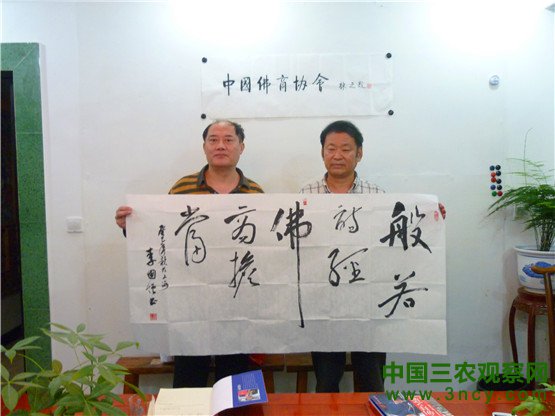 中國佛商协會
般若
詩經
佛
商擔
當
中国三农观察网
www.3ncy.com